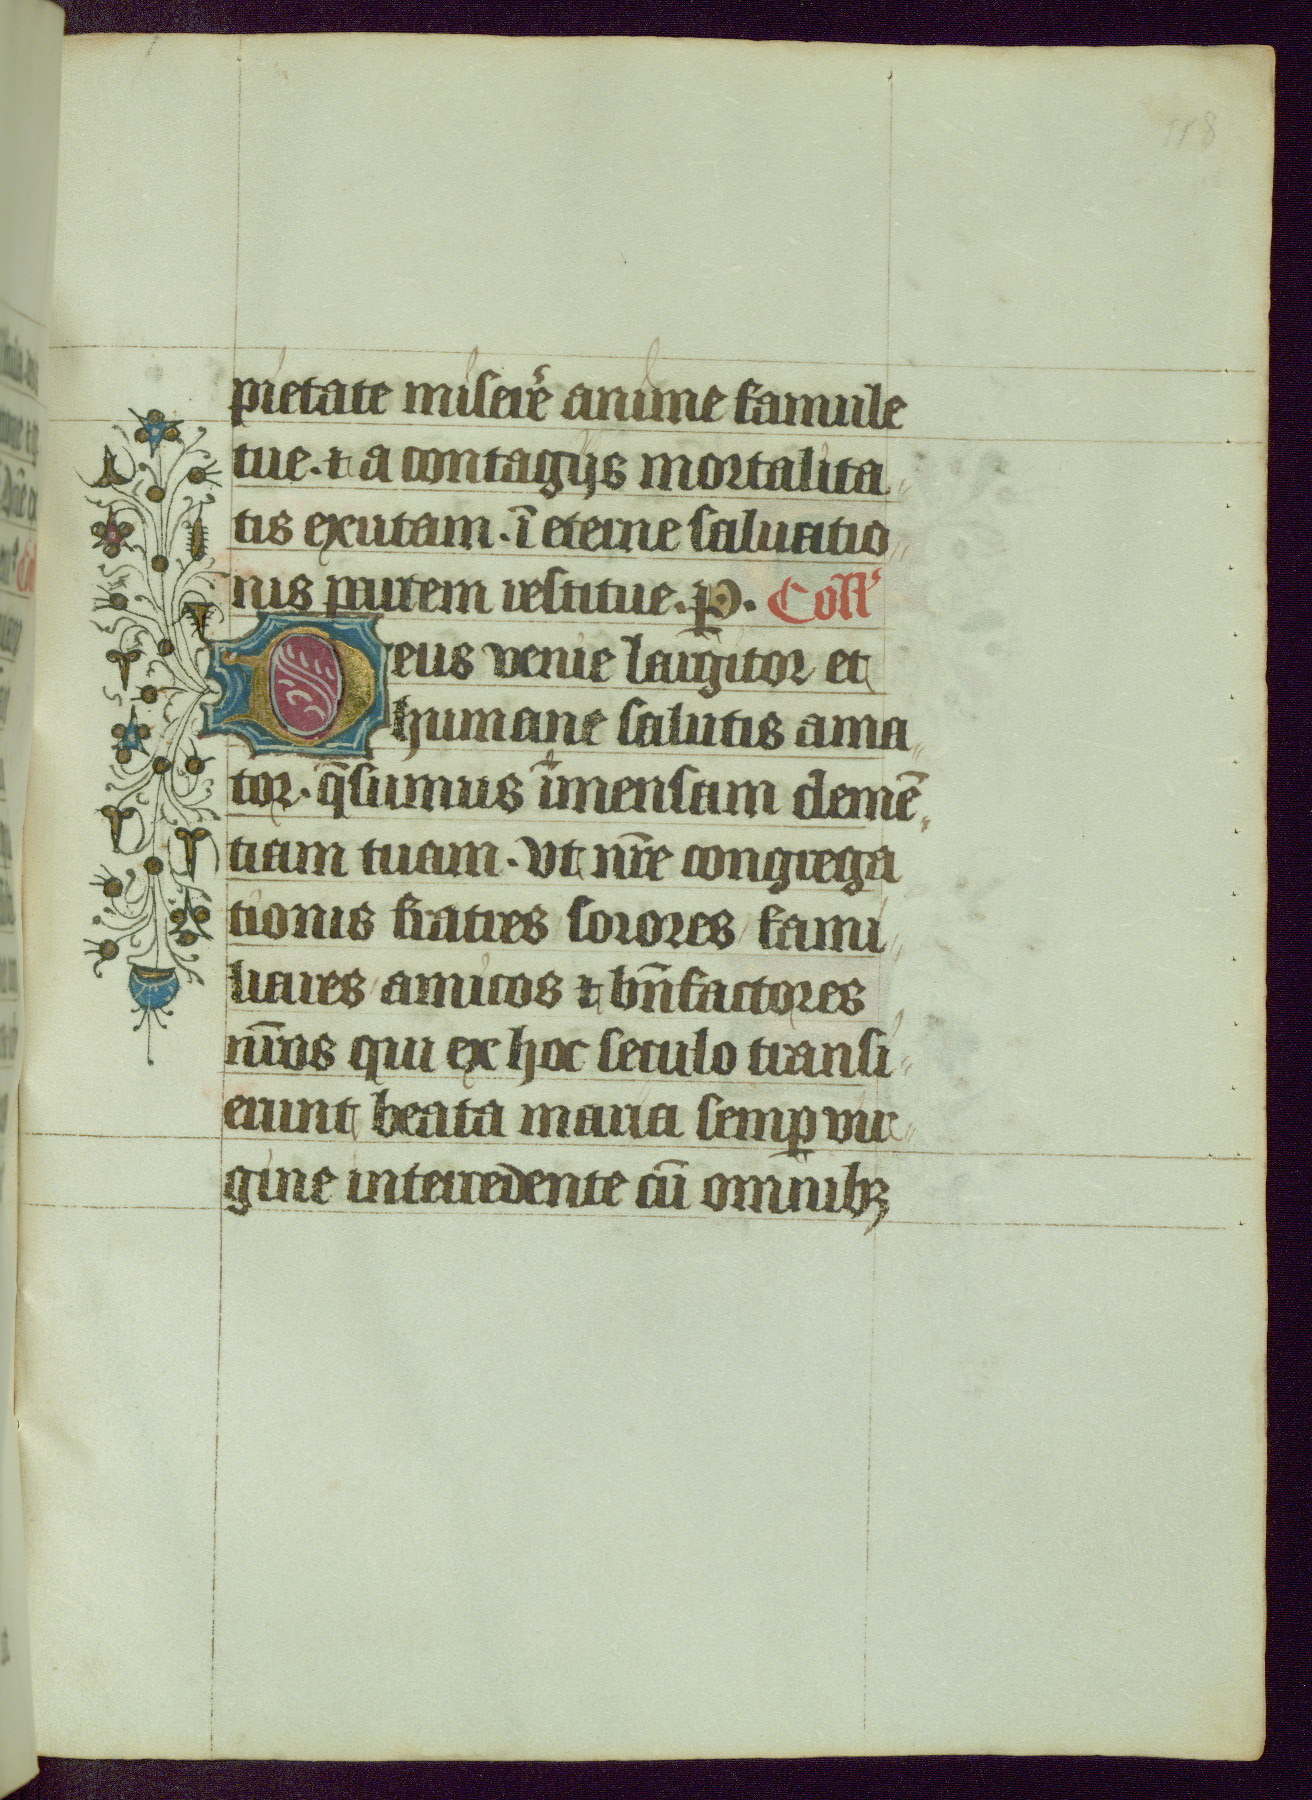 118
pietate miser̄e anime famule
tue. ⁊ a contagijs mortalita
tis exutam. ī eterne saluatio
nis partem restitue. ꝑ. Coll'
Deus venie largitor et
humane salutis ama
tor. q̄sumus īmensam clemē
tiam tuam. vt nr̄e congrega
tionis fratres sorores fami
liares amicos ⁊ bn̄factores
nr̄os qui ex hoc seculo transi
erunt beata maria semꝑ vir
gine intercedente cū omnibꝫ